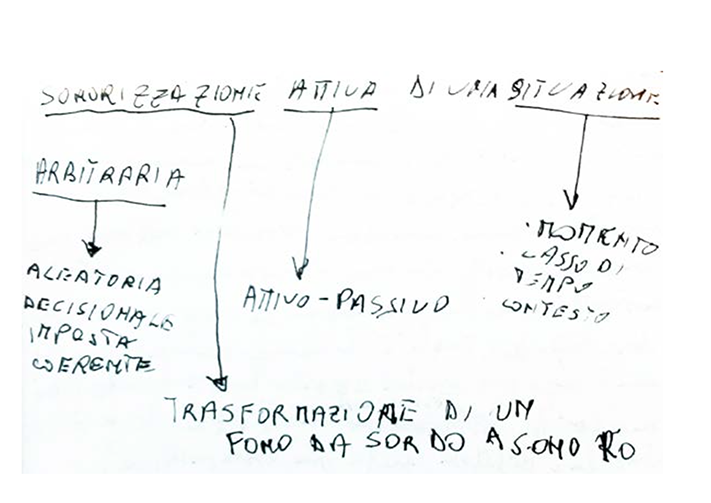 SONORIZZAZIONE ATTIVA DI UNA SITUAZIONE
ARBITRARIA
ALEATORIA
DECISIONALE
IMPOSTA
COERENTE
ATTIVO-PASSIVO
· MOMENTO
· LASSO DI
TEMPO
· CONTESTO
TRASFORMAZIONE DI UN
FONO DA SORDO A SONORO